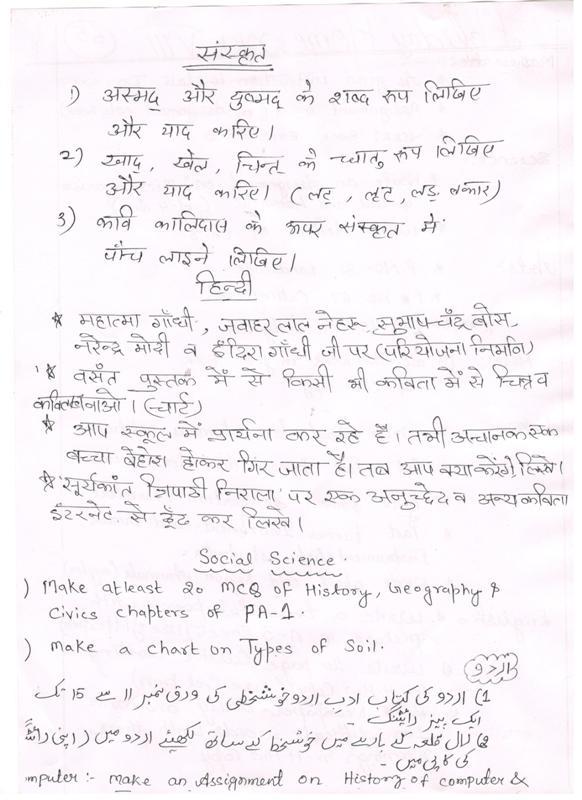 संस्कृत
1) अस्मद् और युष्मद् के शब्द रूप लिखिए
और याद करिए।
2) खाद्, खेल, चिन्त् के धातु रूप लिखिए
और याद करिए। (लट्, लृट, लङ् लकार)
3) कवि कालिदास के ऊपर संस्कृत में
पाँच लाइने लिखिए।
हिन्दी
* महात्मा गाँधी, जवाहर लाल नेहरू, सुभाषचँद्र बोस,
नरेन्द्र मोदी व इंदिरा गाँधी जी पर (परियोजना निर्माण)
* वसंत पुस्तक में से किसी भी कविता में से चित्र व
कविता बनाओ। (चार्ट)
* आप स्कूल में प्रार्थना कर रहे है। तभी अचानक एक
बच्चा बेहोश होकर गिर जाता है। तब आप क्या करेंगे, लिखे।
* सूर्यकांत त्रिपाठी निराला पर एक अनुच्छेद व अन्य कविता
इंटरनेट से ढूँढ कर लिखे।
Social Science.
) Make atleast 20 MCQ of History, Geography &
Civics chapters of PA-1.
) Make a chart on Types of Soil.
اردو
1) اردو کی کتاب ادب اردو خوشخطی کی ورق نمبر 11 سے 15 تک
ایک پیز رائٹنگ۔
2) لال قلعہ کے بارے میں خوشخط کے ساتھ لکھئے اردو میں (اپنی رائٹنگ
کی کاپی میں۔
mputer :- Make an Assignment on History of computer &